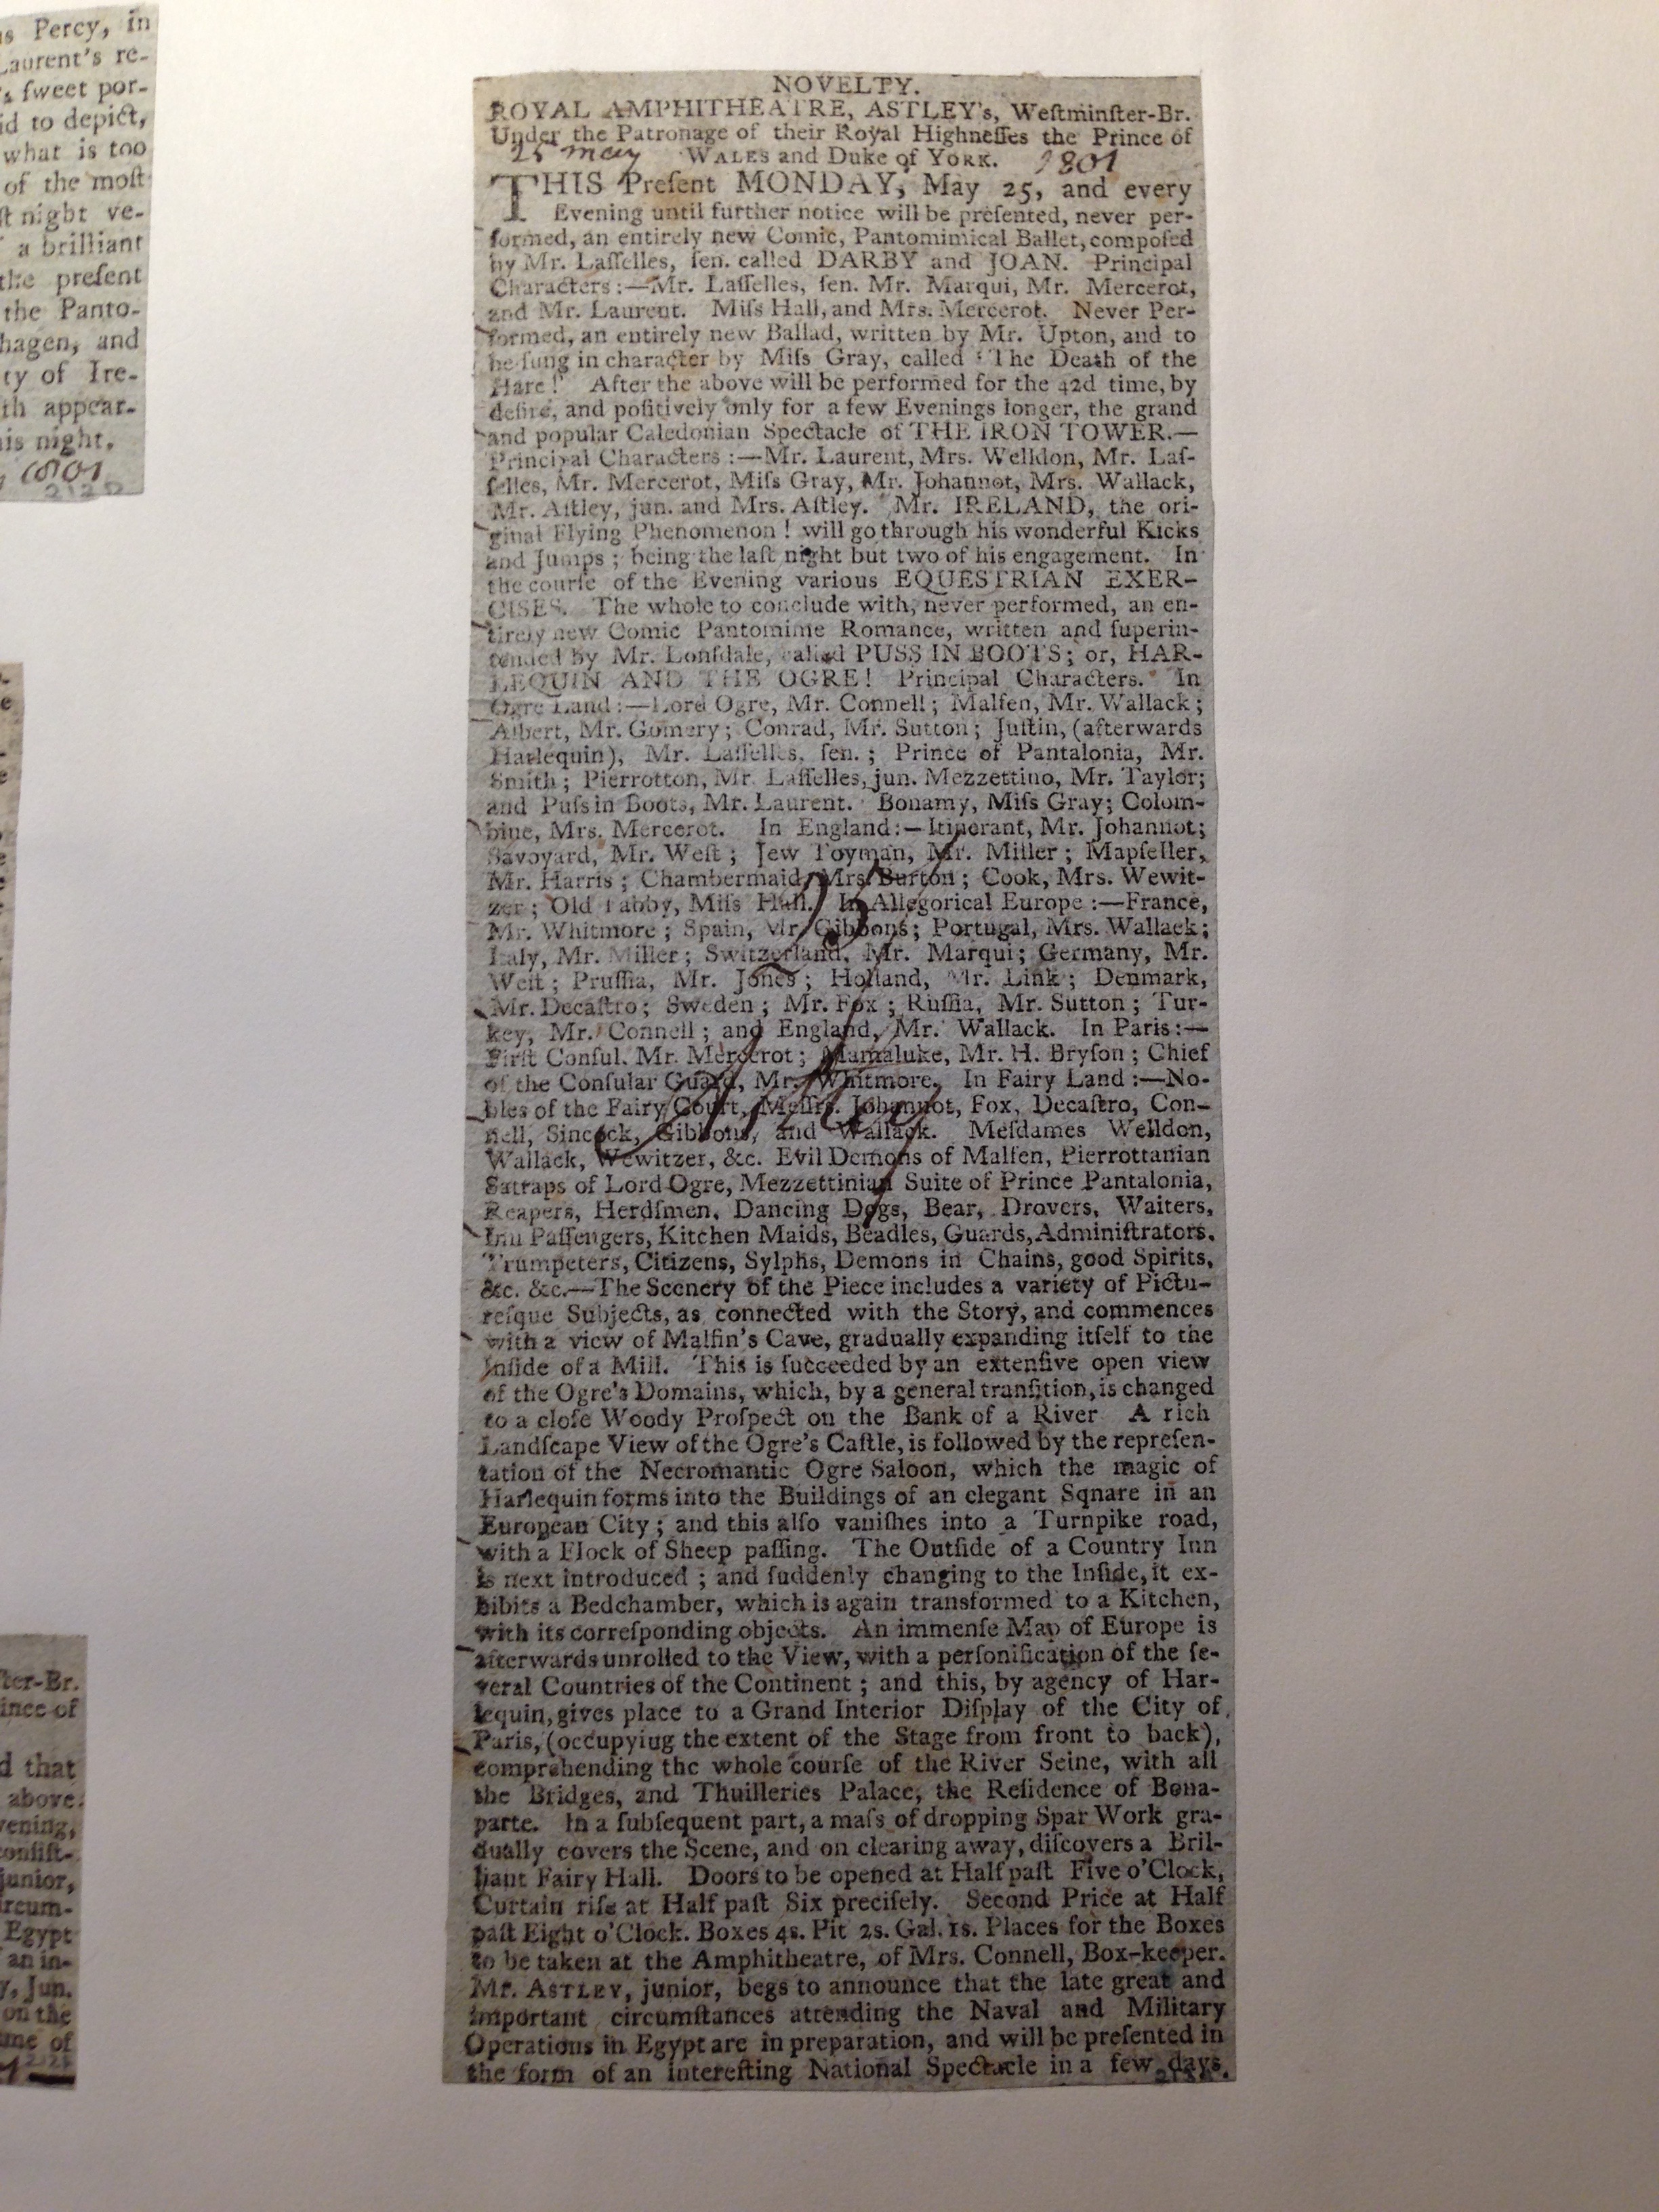 s Percy, in
Laurent's re-
's ſweet por-
id to depict,
what is too
of the moſt
ſt night ve-
a brilliant
the preſent
the Panto-
hagen, and
ty of Ire-
th appear-
is night.
1801
NOVELTY.
ROYAL AMPHITHEATRE, ASTLEY's, Weſtminſter-Br.
Under the Patronage of their Royal Highneſſes the Prince of
WALES and Duke of YORK.
25 may 1801
THIS Preſent MONDAY, May 25, and every
Evening until further notice will be preſented, never per-
formed, an entirely new Comic, Pantomimical Ballet, compoſed
by Mr. Laſſelles, ſen. called DARBY and JOAN. Principal
Characters:—Mr. Laſſelles, ſen. Mr. Marqui, Mr. Mercerot,
and Mr. Laurent. Miſs Hall, and Mrs. Mercerot. Never Per-
formed, an entirely new Ballad, written by Mr. Upton, and to
be ſung in character by Miſs Gray, called 'The Death of the
Hare!' After the above will be performed for the 42d time, by
deſire, and poſitively only for a few Evenings longer, the grand
and popular Caledonian Spectacle of THE IRON TOWER.—
Principal Characters:—Mr. Laurent, Mrs. Welldon, Mr. Laſ-
ſelles, Mr. Mercerot, Miſs Gray, Mr. Johannot, Mrs. Wallack,
Mr. Aſtley, jun. and Mrs. Aſtley. Mr. IRELAND, the ori-
ginal Flying Phenomenon! will go through his wonderful Kicks
and Jumps; being the laſt night but two of his engagement. In
the courſe of the Evening various EQUESTRIAN EXER-
CISES. The whole to conclude with, never performed, an en-
tirely new Comic Pantomime Romance, written and ſuperin-
tended by Mr. Lonſdale, called PUSS IN BOOTS; or, HAR-
LEQUIN AND THE OGRE! Principal Characters. In
Ogre Land:—Lord Ogre, Mr. Connell; Malfen, Mr. Wallack;
Albert, Mr. Gomery; Conrad, Mr. Sutton; Juſtin, (afterwards
Harlequin), Mr. Laſſelles, ſen.; Prince of Pantalonia, Mr.
Smith; Pierrotton, Mr. Laſſelles, jun. Mezzettino, Mr. Taylor;
and Puſs in Boots, Mr. Laurent. Bonamy, Miſs Gray; Colom-
bine, Mrs. Mercerot. In England:—Itinerant, Mr. Johannot;
Savoyard, Mr. Weſt; Jew Toyman, Mr. Miller; Mapſeller,
Mr. Harris; Chambermaid, Mrs. Burton; Cook, Mrs. Wewit-
zer; Old Tabby, Miſs Hall. In Allegorical Europe:—France,
Mr. Whitmore; Spain, Mr. Gibbons; Portugal, Mrs. Wallack;
Italy, Mr. Miller; Switzerland, Mr. Marqui; Germany, Mr.
Weſt; Pruſſia, Mr. Jones; Holland, Mr. Link; Denmark,
Mr. Decaſtro; Sweden; Mr. Fox; Ruſſia, Mr. Sutton; Tur-
key, Mr. Connell; and England, Mr. Wallack. In Paris:—
Firſt Conſul, Mr. Mercerot; Mamaluke, Mr. H. Bryſon; Chief
of the Conſular Guard, Mr. Whitmore. In Fairy Land:—No-
bles of the Fairy Court, Meſſrs. Johannot, Fox, Decaſtro, Con-
nell, Sincock, Gibbons, and Wallack. Meſdames Welldon,
Wallack, Wewitzer, &c. Evil Demons of Malfen, Pierrottanian
Satraps of Lord Ogre, Mezzettinian Suite of Prince Pantalonia,
Reapers, Herdſmen, Dancing Dogs, Bear, Drovers, Waiters,
Inn Paſſengers, Kitchen Maids, Beadles, Guards, Adminiſtrators,
Trumpeters, Citizens, Sylphs, Demons in Chains, good Spirits,
&c. &c.—The Scenery of the Piece includes a variety of Pictu-
reſque Subjects, as connected with the Story, and commences
with a view of Malfin's Cave, gradually expanding itſelf to the
inſide of a Mill. This is ſucceeded by an extenſive open view
of the Ogre's Domains, which, by a general tranſition, is changed
to a cloſe Woody Proſpect on the Bank of a River A rich
Landſcape View of the Ogre's Caſtle, is followed by the repreſen-
tation of the Necromantic Ogre Saloon, which the magic of
Harlequin forms into the Buildings of an elegant Sqnare in an
European City; and this alſo vaniſhes into a Turnpike road,
with a Flock of Sheep paſſing. The Outſide of a Country Inn
is next introduced; and ſuddenly changing to the Inſide, it ex-
hibits a Bedchamber, which is again transformed to a Kitchen,
with its correſponding objects. An immenſe Map of Europe is
afterwards unrolled to the View, with a perſonification of the ſe-
veral Countries of the Continent; and this, by agency of Har-
lequin, gives place to a Grand Interior Diſplay of the City of
Paris, (occupyiug the extent of the Stage from front to back),
comprehending the whole courſe of the River Seine, with all
the Bridges, and Thuilleries Palace, the Reſidence of Bona-
parte. In a ſubſequent part, a maſs of dropping Spar Work gra-
dually covers the Scene, and on clearing away, diſcovers a Bril-
liant Fairy Hall. Doors to be opened at Half paſt Five o'Clock,
Curtain riſe at Half paſt Six preciſely. Second Price at Half
paſt Eight o'Clock. Boxes 4s. Pit 2s. Gal. 1s. Places for the Boxes
to be taken at the Amphitheatre, of Mrs. Connell, Box-keeper.
Mr. ASTLEY, junior, begs to announce that the late great and
important circumſtances attending the Naval and Military
Operations in Egypt are in preparation, and will be preſented in
the form of an intereſting National Spectacle in a few days.
ſter-Br.
ince of
d that
above
vening,
conſiſt-
junior,
ircum-
Egypt
an in-
y, Jun.
on the
ame of